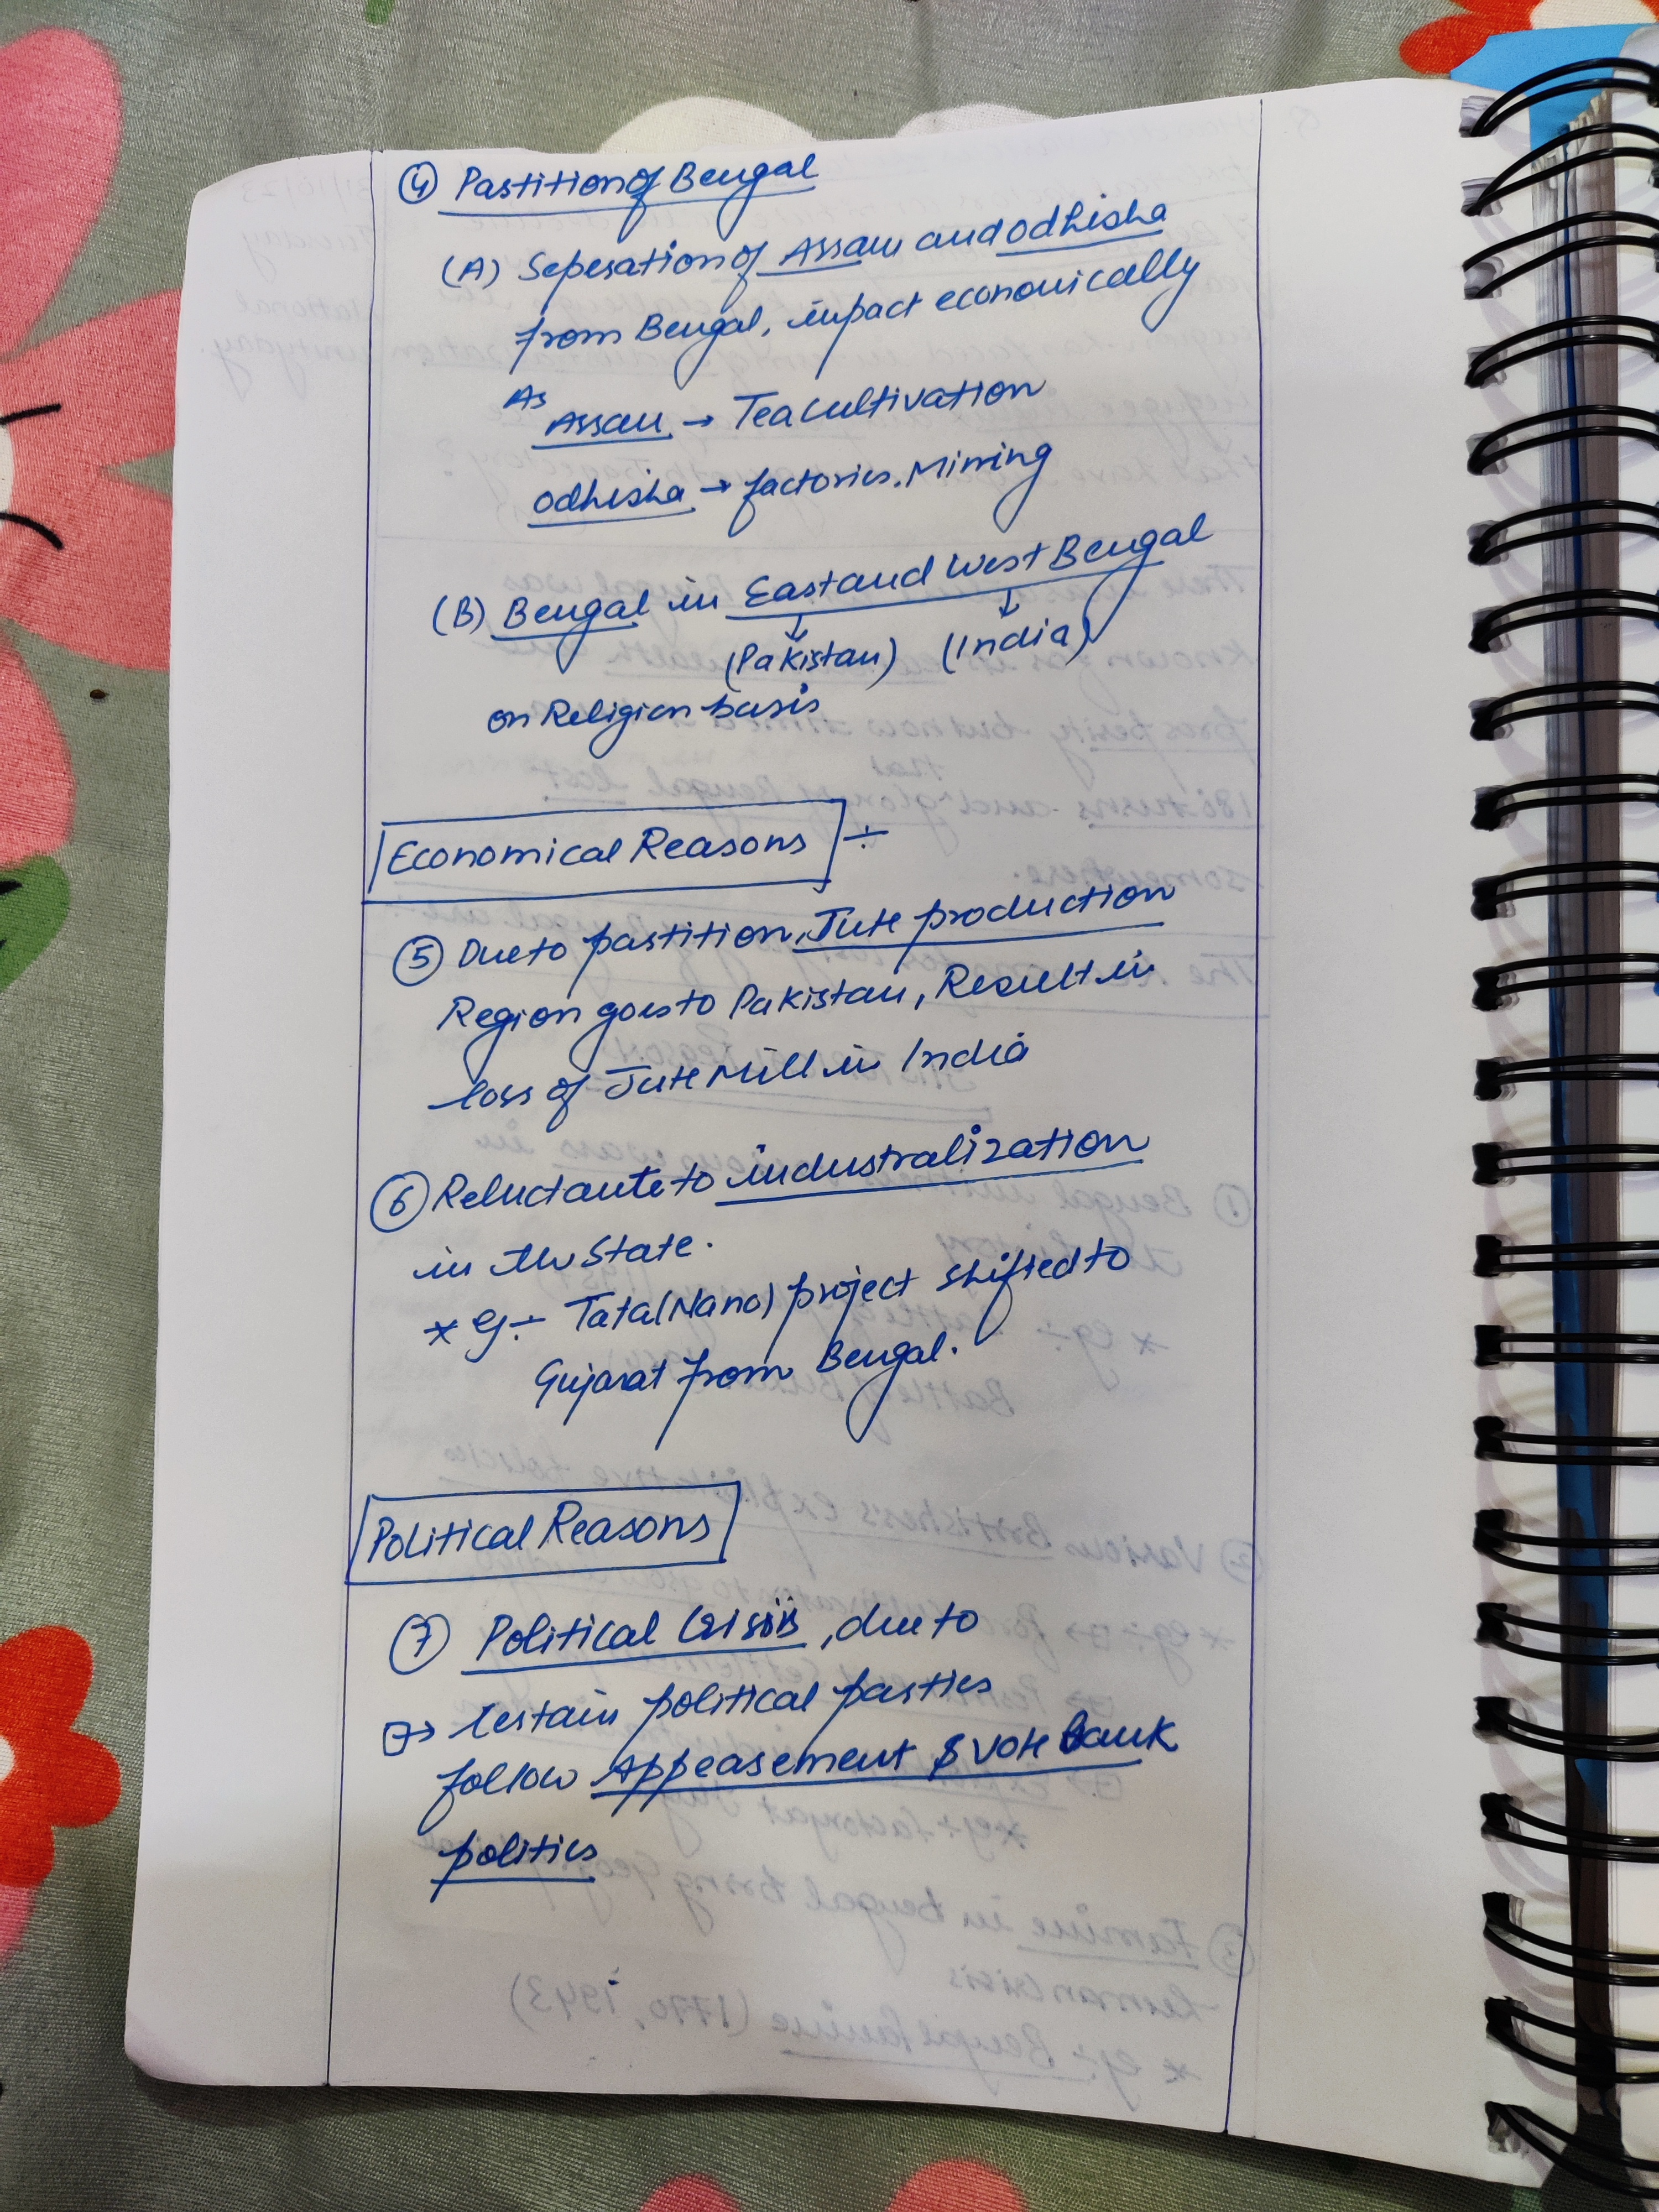 ④ Partition of Bengal
(A) Seperation of Assam and Odhisha
from Bengal, impact economically
As
Assam → Tea cultivation
Odhisha → factories, Mining
(B) Bengal in East and West Bengal
↓ ↓
(Pakistan) (India)
on Religion basis
Economical Reasons ÷
⑤ Due to partition, Jute production
Region goes to Pakistan, Result in
loss of Jute Mill in India
⑥ Reluctante to industralization
in the State.
* eg ÷ Tata (Nano) project shifted to
Gujarat from Bengal.
Political Reasons
⑦ Political Crisis, due to
→ Certain political parties
follow Appeasement & vote bank
politics